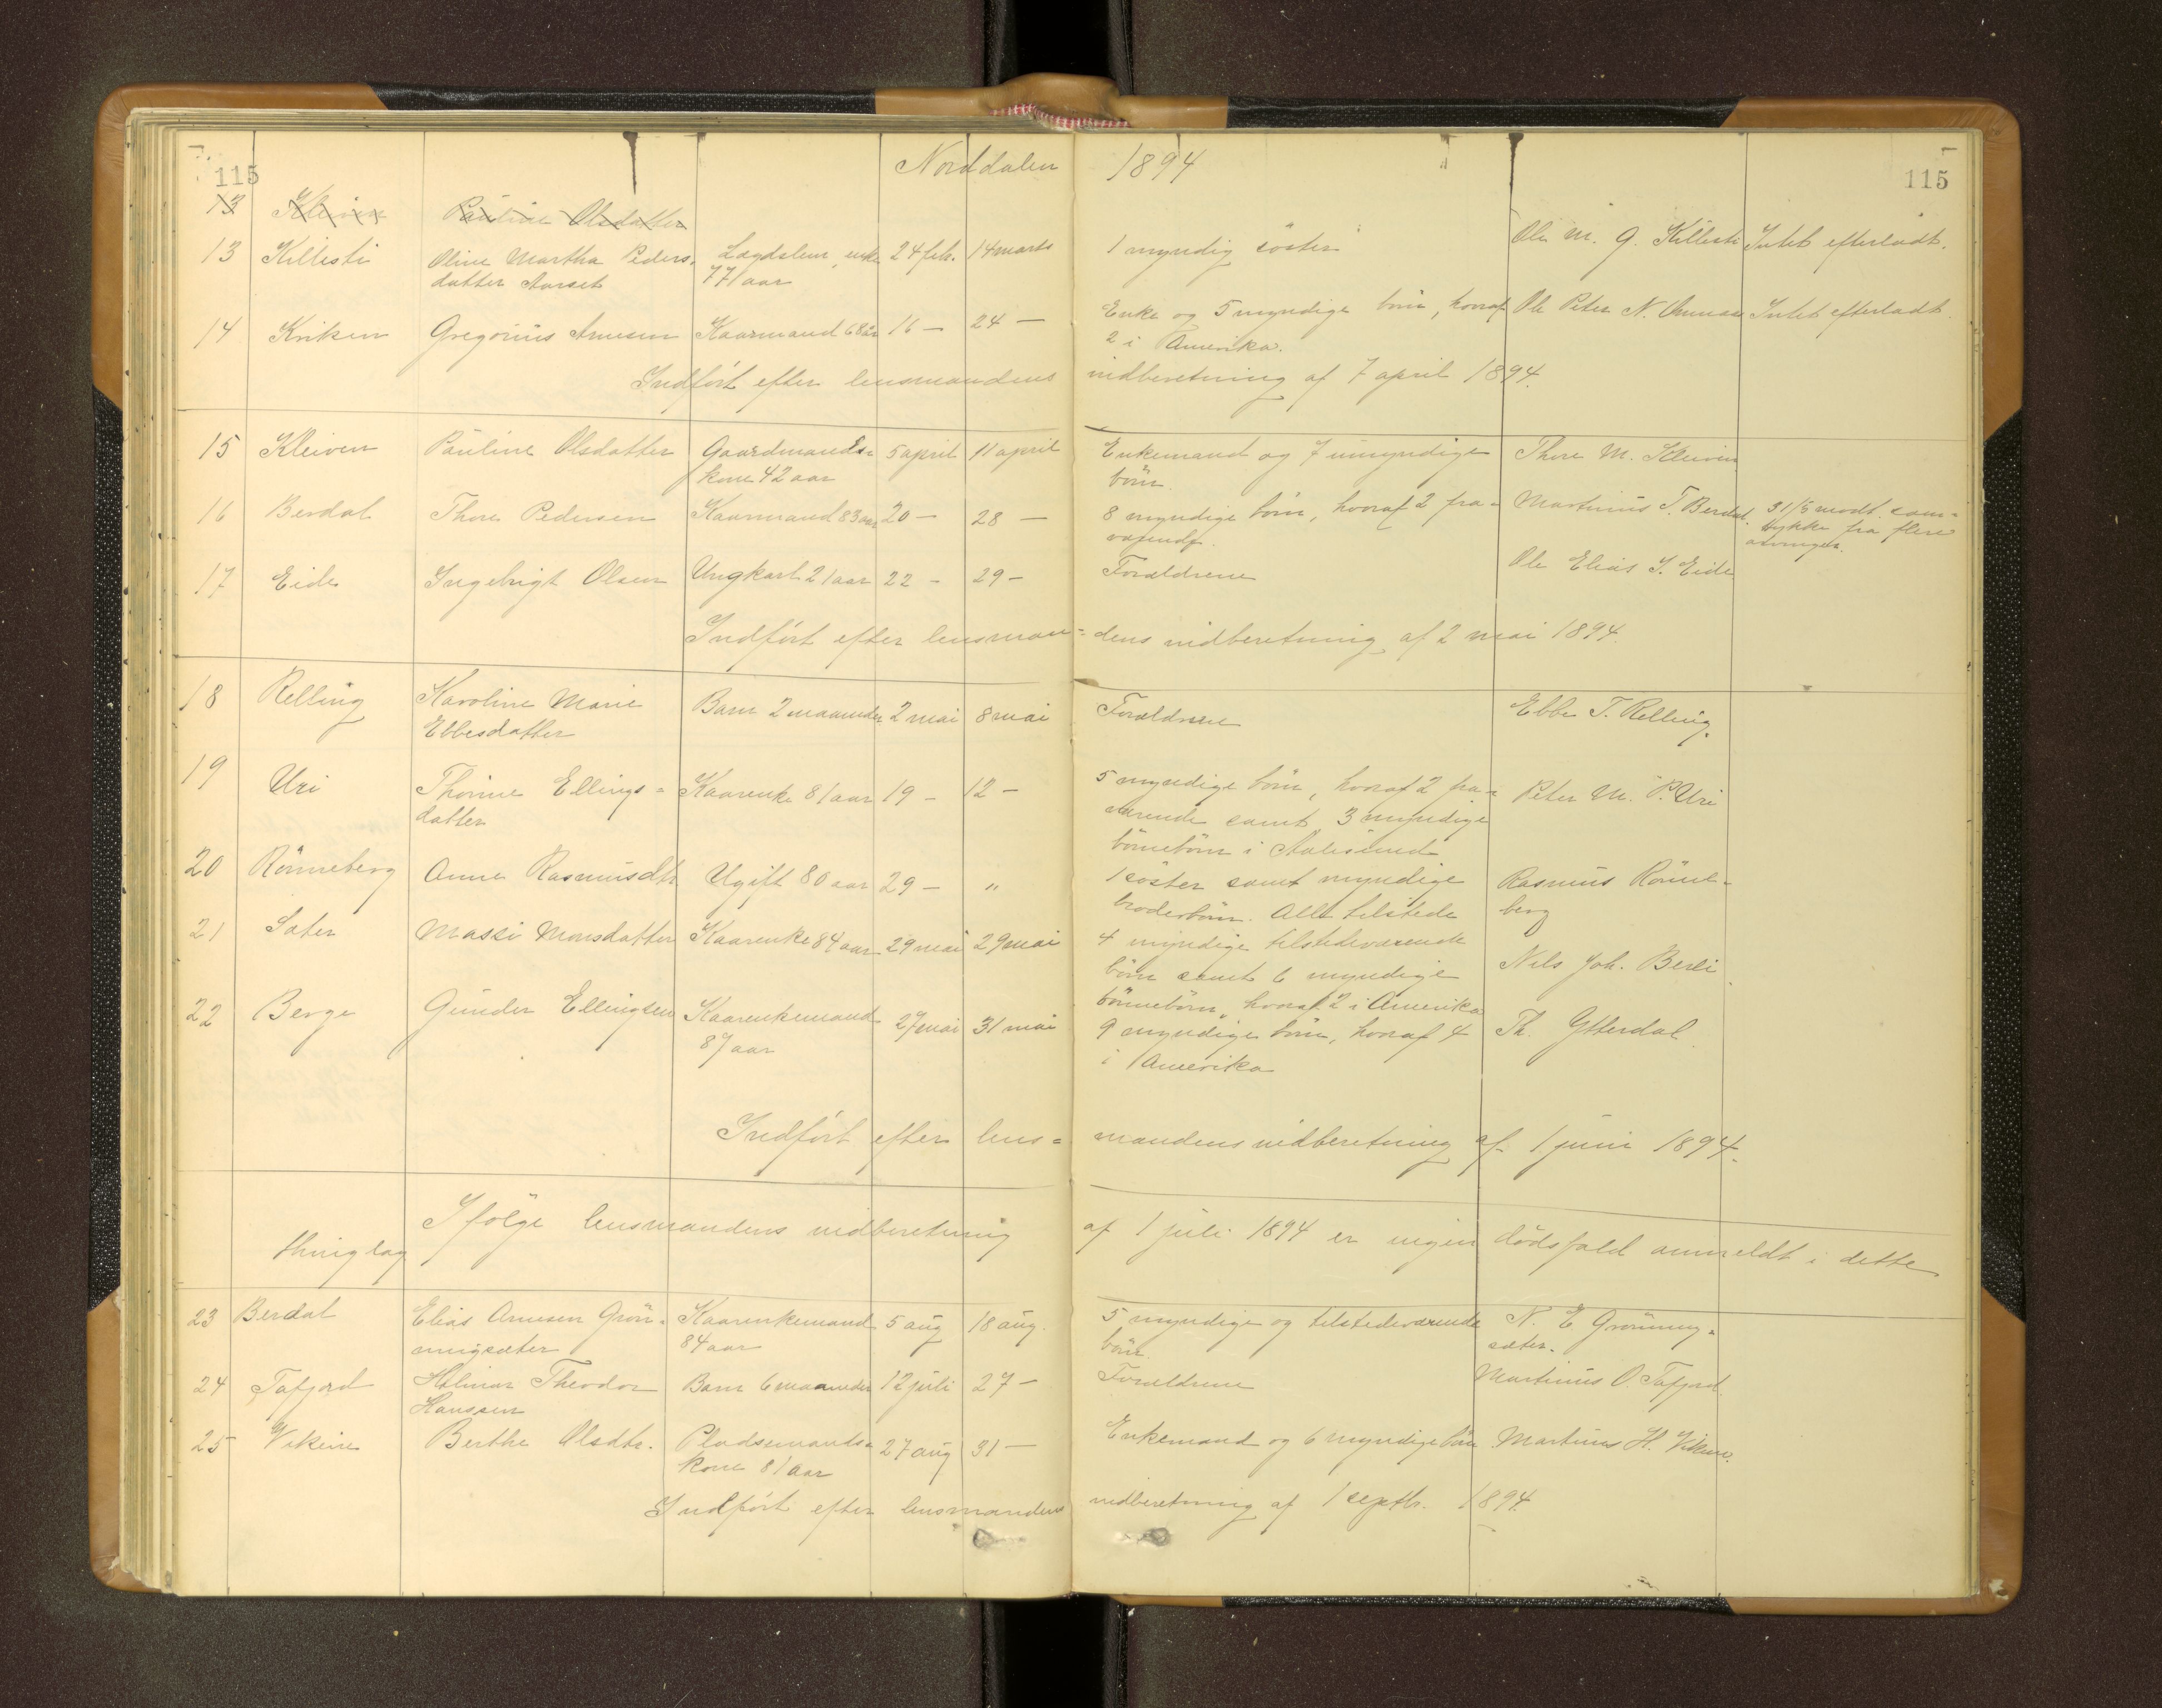 115 Norddalen 1894 115
13 Kleiven Pauline Olsdatter
13 Killesti Oline Martha Peders- Lægdslem, enke 24 feb. 14 marts 1 myndig söster Ole M. G. Killesti Intet efterladt.
datter Aarset 77 aar
14 Kriken Gregorius Arnesen Kaarmand 68 aar 16 — 24 — Enke og 5 myndige börn, hvoraf Ole Peter N. Intet efterladt.
2 i Amerika.
Indfört efter lensmandens indberetning af 7 april 1894.
15 Kleiven Pauline Olsdatter Gaardmands- 5 april 11 april Enkemand og 7 umyndige Thore M. Kleiven
kone 42 aar börn.
16 Berdal Thore Pedersen Kaarmand 83 aar 20 — 28 — 8 myndige börn, hvoraf 2 fra- Martinus T. Berdal. 31/5 modt. sam-
værende. tykke fra flere
arvinger.
17 Eide Ingebrigt Olsen Ungkarl 21 aar 22 - 29 - Forældrene Ole Elias I. Eide
Indfört efter lensman= dens indberetning af 2 mai 1894.
18 Relling Karoline Marie Barn 2 maaneder 2 mai 8 mai Forældrene Ebbe T. Relling.
Ebbesdatter
19 Uri Thorine Ellings= Kaarenke 81 aar 19 - 12 - 5 myndige börn, hvoraf 2 fra- Peter M. P. Uri
datter værende samt 3 myndige
börnebörn i Aalesund
20 Rönneberg Anne Rasmusdtr Ugift 80 aar 29 - " 1 söster samt myndige Rasmus Rönne-
broderbörn. Alle tilstede berg
21 Sæter Massi Monsdatter Kaarenke 84 aar 29 mai 29 mai 4 myndige tilstedeværende Nils Joh. Berli
börn samt 6 myndige
börnebörn, hvoraf 2 i Amerika
22 Berge Gunder Ellingsen Kaarenkemand 27 mai 31 mai 9 myndige börn, hvoraf 4 Th. Ytterdal
87 aar i Amerika
Indfört efter lens= mandens indberetning af 1 juni 1894.
Ifölge lensmandens indberetning af 1 juli 1894 er ingen dödsfald anmeldt i dette
thinglag
23 Berdal Elias Arnesen Grön- Kaarenkemand 5 aug 18 aug. 5 myndige og tilstedeværende N. E Grönning-
ningsæter 84 aar börn sæter.
24 Tafjord Hilmar Theodor Barn 6 maaneder 12 juli 27 — Forældrene Martinus O. Tafjord.
Hanssen
25 Viken Berthe Olsdtr. Pladsemands- 27 aug 31 — Enkemand og 6 myndige börn Martinus H. Viken.
kone 81 aar
Indfört efter lensmandens indberetning af 1 septbr. 1894.